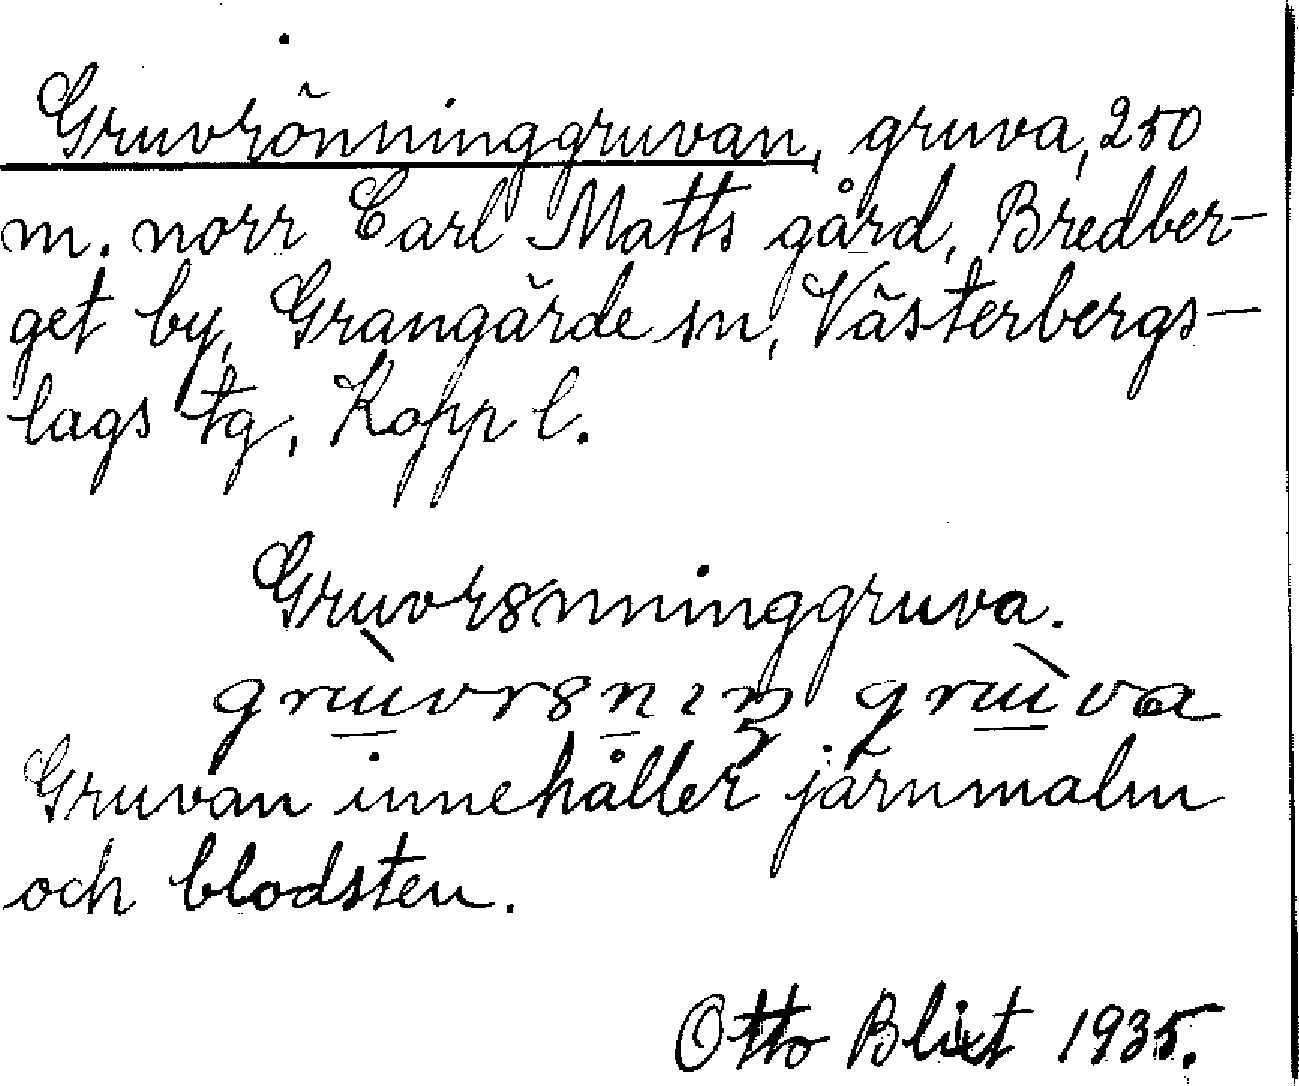 Gruvrönninggruvan, gruva, 250
m. norr Carl Matts gård, Bredber-
get by, Grangärde sn, Västerbergs-
lags tg, Kopp l.
Gruvrsnninggruva.
Gruvan innehåller järnmalm
och blodsten.
Otto Blixt 1935.